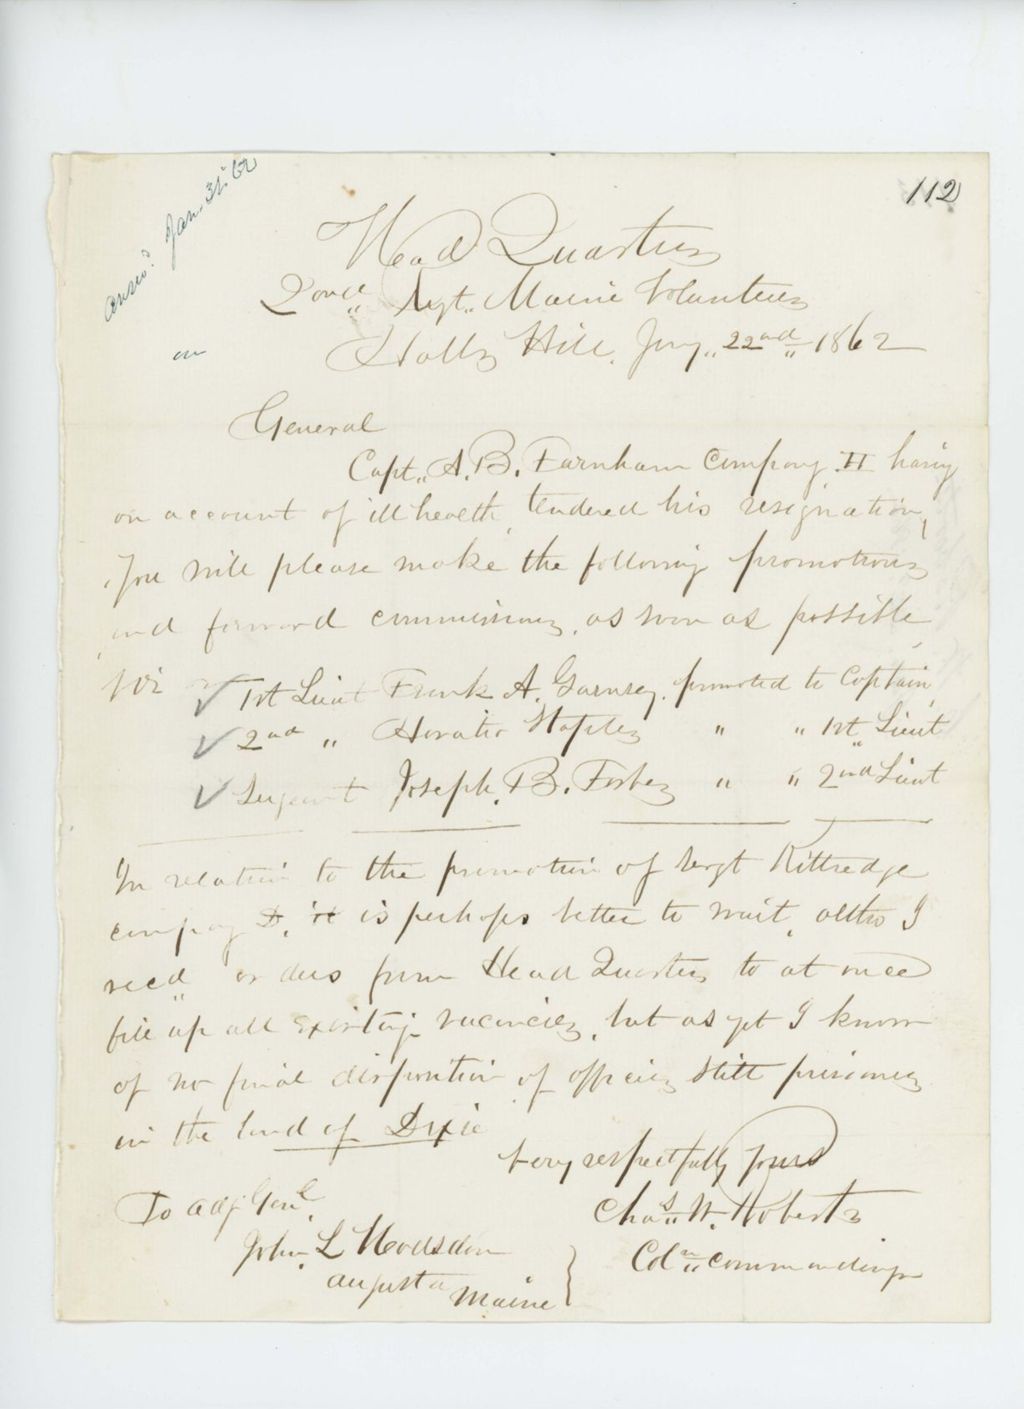 112
answd Jan 31. 62
Head Quarters
2ond Regt. Maine Volunteers
Halls Hill. Jany. 22nd 1862
General
Capt. A. B. Farnham Company H having
on account of ill health tendered his resignation,
You will please make the following promotions
and forward commissions, as soon as possible
viz
✓ 1st Lieut Frank A. Garnsey. promoted to Captain
✓ 2nd " Horatio Staples " " 1st Lieut
✓ Sergeant Joseph. B. Forbes " " 2nd Lieut
In relation to the promotion of Sergt Kittredge
company D, it is perhaps better to wait, altho I
recd orders from Head Quarters to at once
fill up all existing vacancies, but as yet I know
of no final disposition of officers still prisoners
in the land of Dixie
Very respectfully yours
Chas. W. Roberts
Coln commanding
To Adj Genl.
John. L Hodsdon
Augusta
Maine